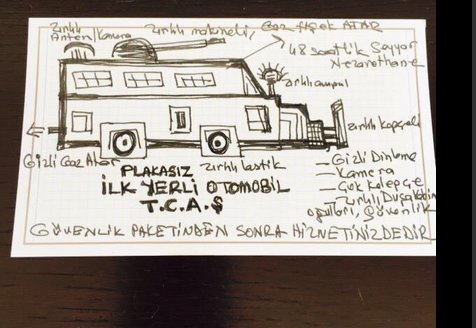 zırhlı
Anten/Kamera
zırhlı makineli, Gaz fişek ATAR
48 saatlik Seyyar
Nezarethane
zırhlı ampul
zırhlı kapçalı
Gizli Gaz Atar
zırhlı lastik
PLAKASIZ
İLK YERLİ OTOMOBİL
T.C.A.Ş
— Gizli Dinleme
— Kamera
— Çok kelepçe
— zırhlı
Güvenlik
GÜVENLİK PAKETİNDEN SONRA HİZMETİNİZDEDİR